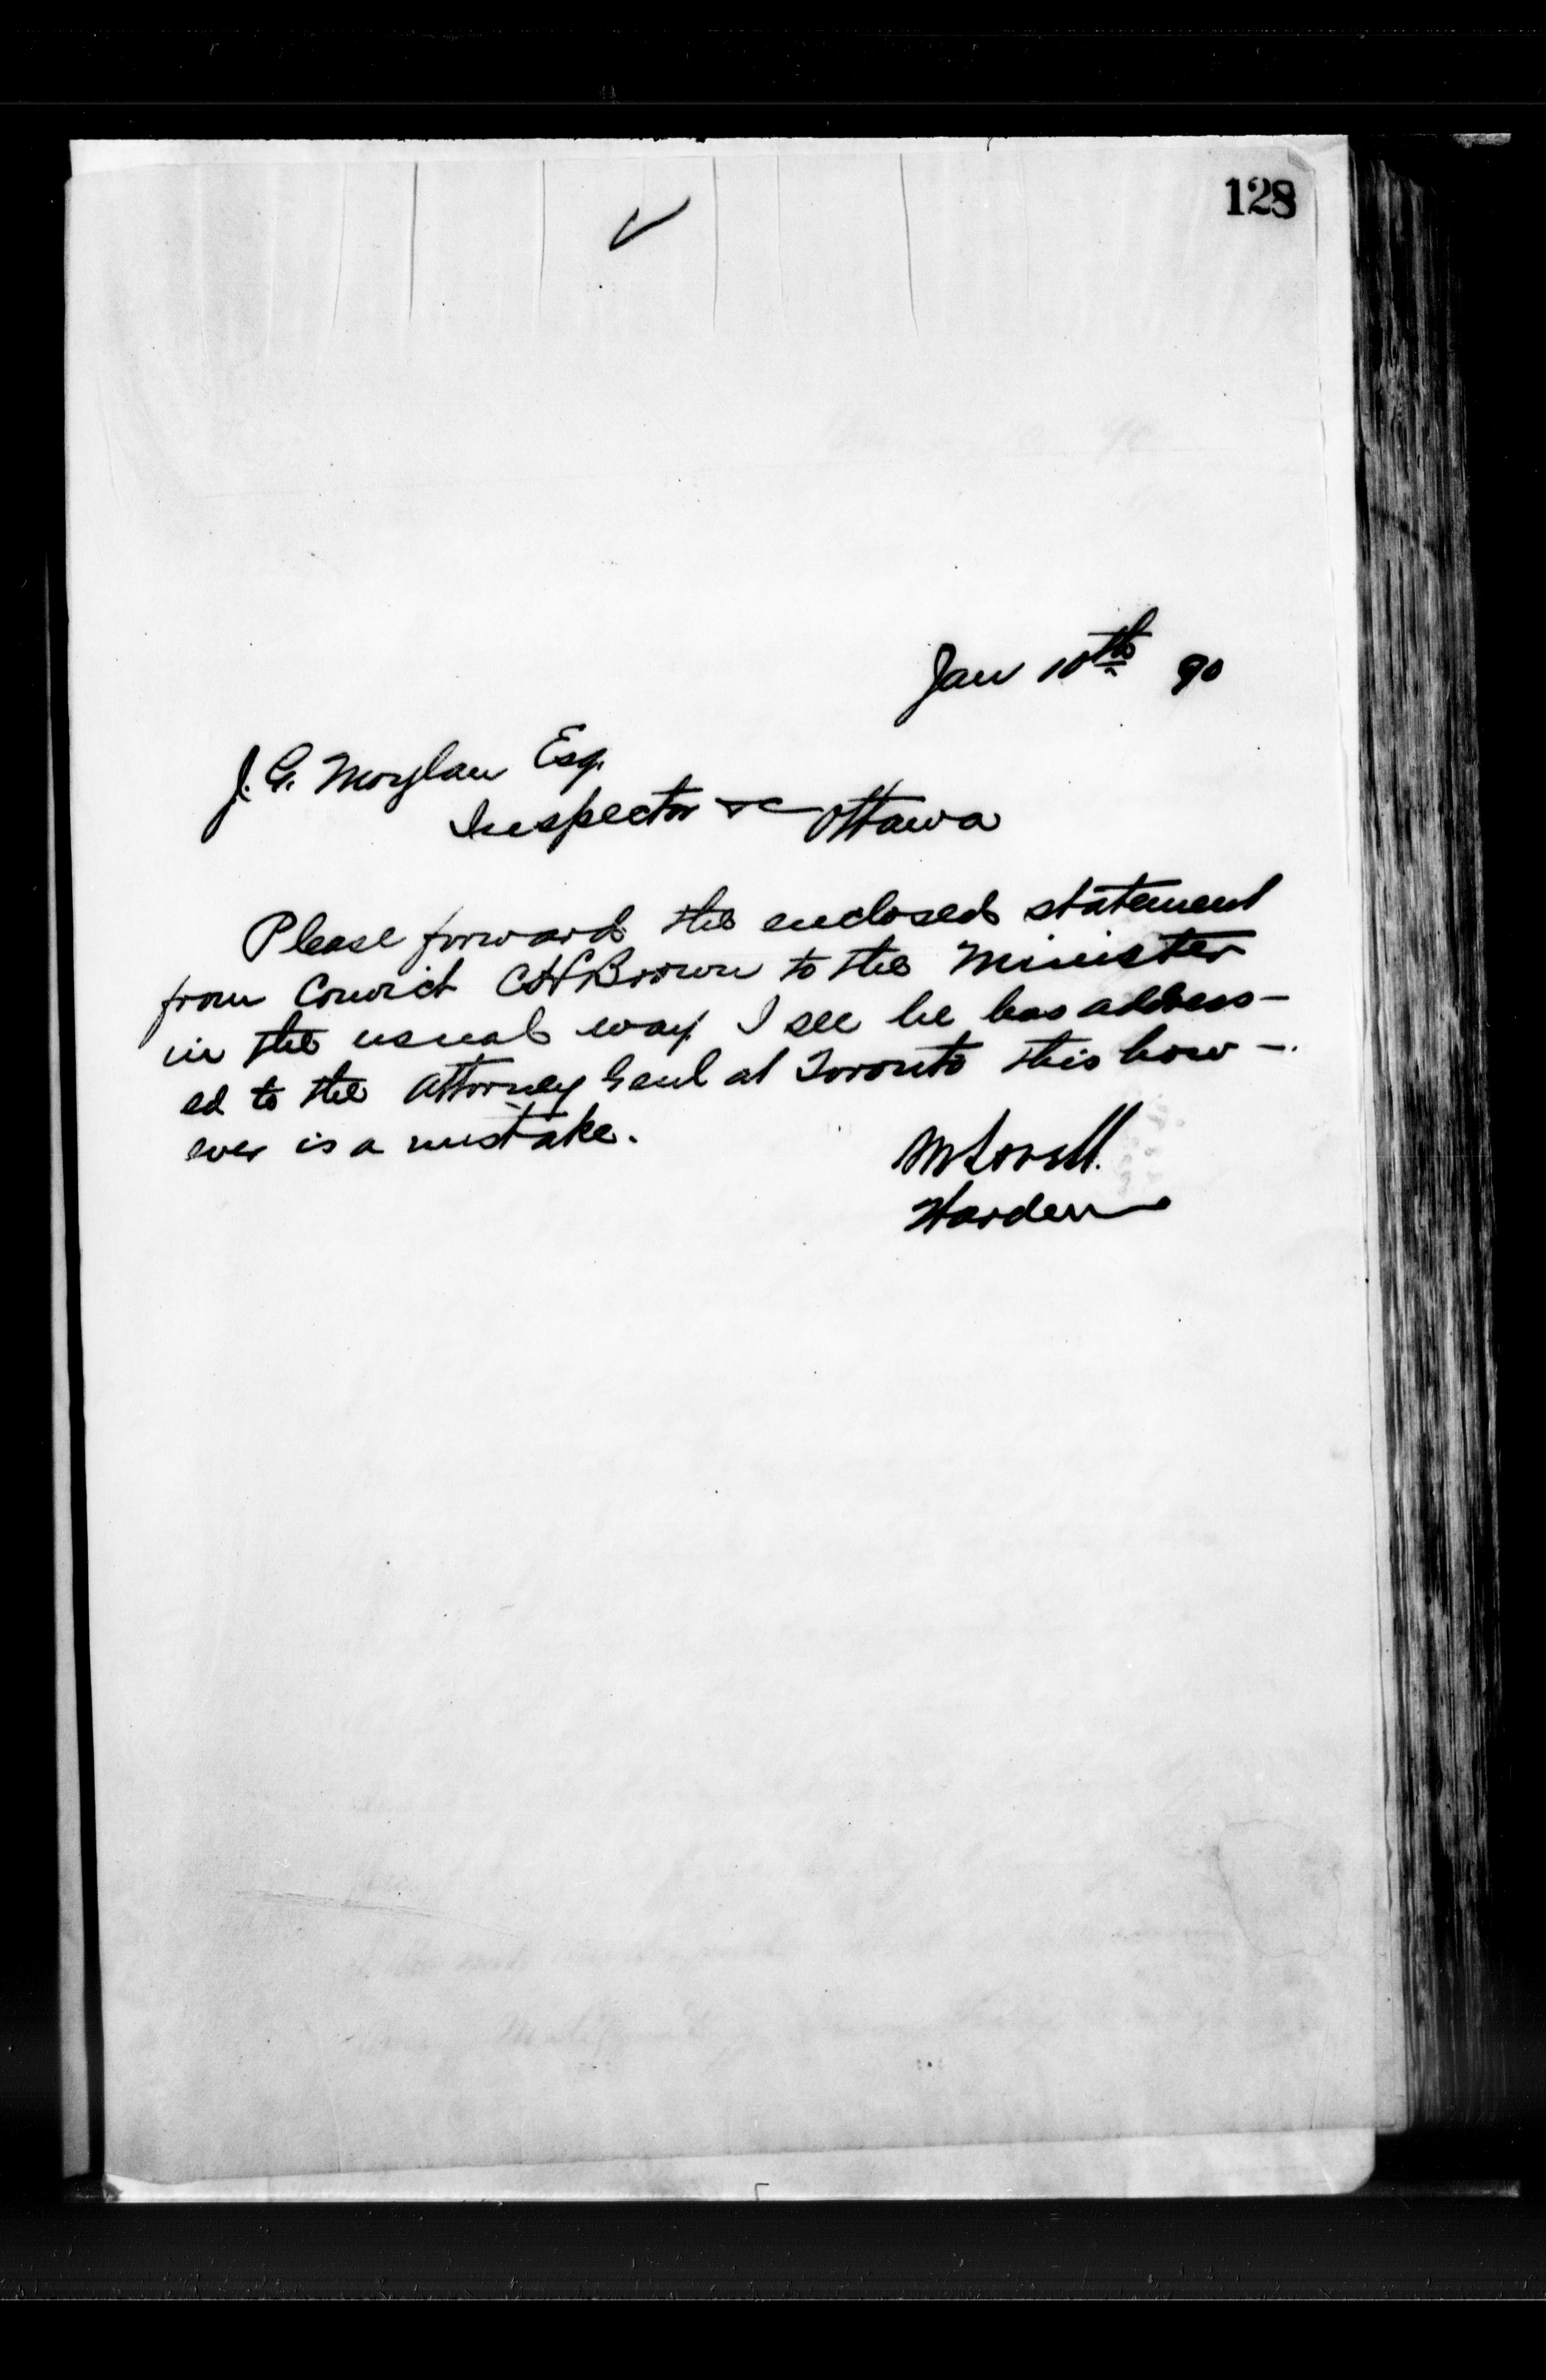 128
Jan 10th 90
J. G. Moylan Esq.
Inspector &c Ottawa
Please forward the enclosed statement
from Convict C H Brown to the Minister
in the usual way. I see he has address-
ed to the Attorney Genl at Toronto this how-
ever is a mistake.
M Lavell.
Warden